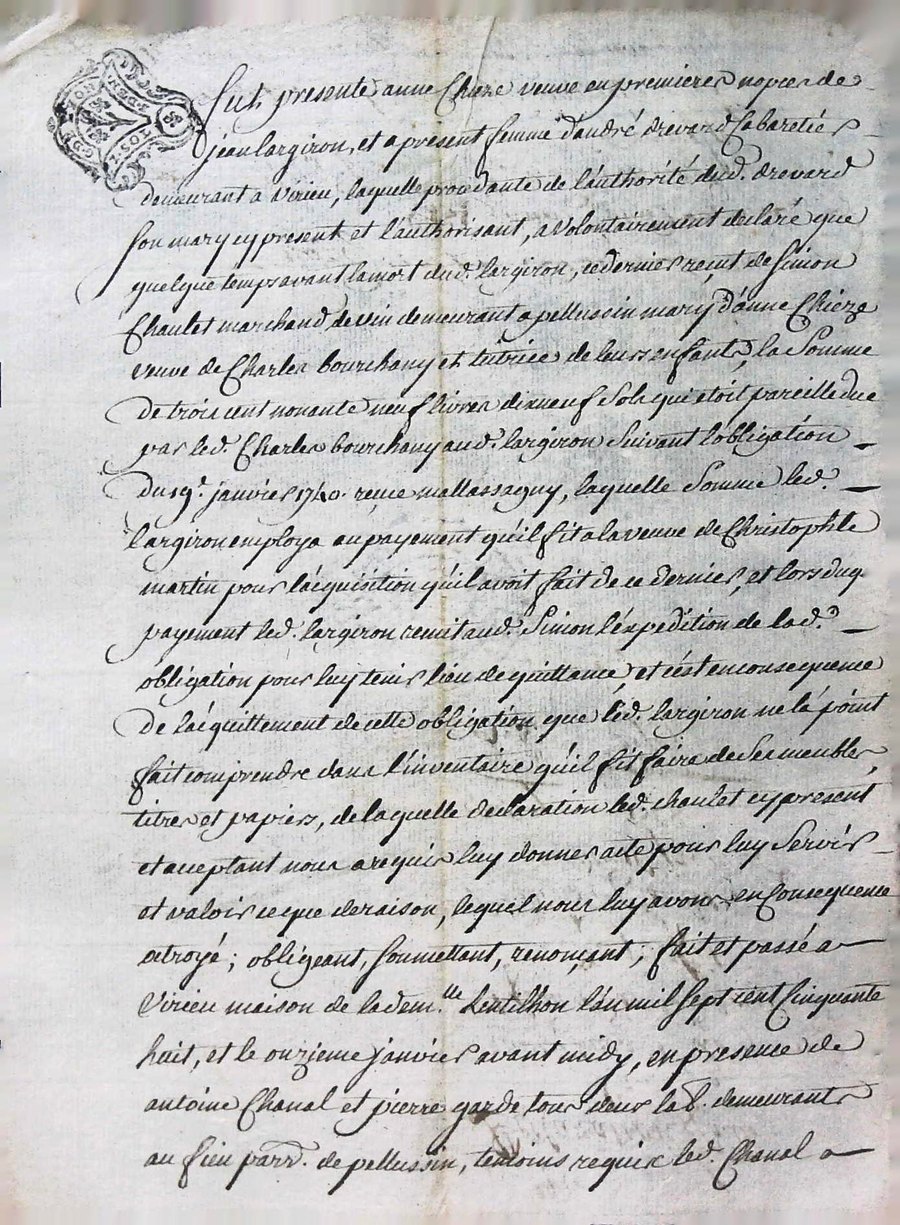 fut presente anne Chieze veuve en premieres nopces de
jean largiron, et a present femme d'andré drevard Cabaretier
demeurant a Virieu, laquelle procedante de l'authorité dud. drevard
son mary cy present et l'authorisant, a volontairement declaré que
quelque temps avant la mort dud. largiron, ce dernier reçut de Simon
Chaulet marchand de vin demeurant a pellussin mary d'anne Chieze
veuve de Charles bourchany et tutrice de leurs enfants, la Somme
de trois cent nonante neuf livres dixneuf Sols qui étoit pareille due
par led. Charles bourchany aud. largiron Suivant l'obligation
du 19e. janvier 1740. reçue mallassagny, laquelle Somme led.
largiron employa au payement qu'il fit a la veuve de Christophle
martin pour l'acquisition qu'il avoit fait de ce dernier, et lors duq.
payement led. largiron remit aud. Simon l'éxpedition de lad.
obligation pour luy tenir lieu de quittance, et c'est en consequence
de l'acquittement de cette obligation que led. largiron ne l'a point
fait comprendre dans l'inventaire qu'il fit faire de Ses meubles,
titres et papiers, de laquelle declaration led. chaulet cy present
et acceptant nous a requis luy donner acte pour luy Servir
et valoir ce que de raison, lequel nous luy avons en Consequence
atroyé; obligeant, soumettant, renonçant; fait et passé a
Virieu maison de la dem.lle Lentilhon l'an mil Sept cent Cinquante
huit, et le onzieme janvier avant midy, en presence de
antoine Chanal et pierre garde tous deux lab. demeurants
au fieu parr. de pellussin, temoins requis led. Chanal a